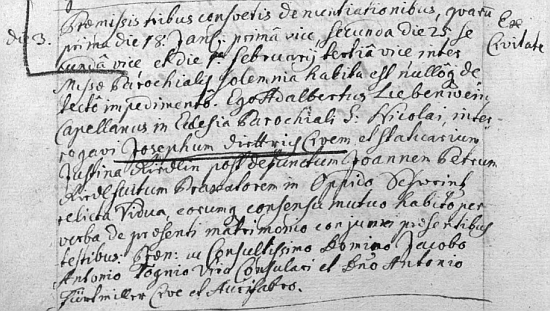 Praemissis tribus consvetis denuntiationibus, quarũ Ex
die 3. prima die 18. Janrij primâ vice, secunda die 25 se Civitate
cundâ vice et die 1ma februarij tertiâ vice inter
Missae Parochialis solemnia habita est nullôq de
tectô impedimentô. Ego Adalbertus Liebenwein
Capellanus in Eclesia Parochiali S: Nicolai, inter
rogavi Josephum Diettrich Civem et
Justina post defunctum Joannem Petrum
in Oppido
relicta Vidua, eorumq consensu mutuo habito per
verba de praesenti matrimonio conjunxi praesentibus
testibus: Consultissimo Domino Jacobo
Antonio Tognio Viro Consulari et Dno Antonio
Fürtmiller Cive et Aurifabro.